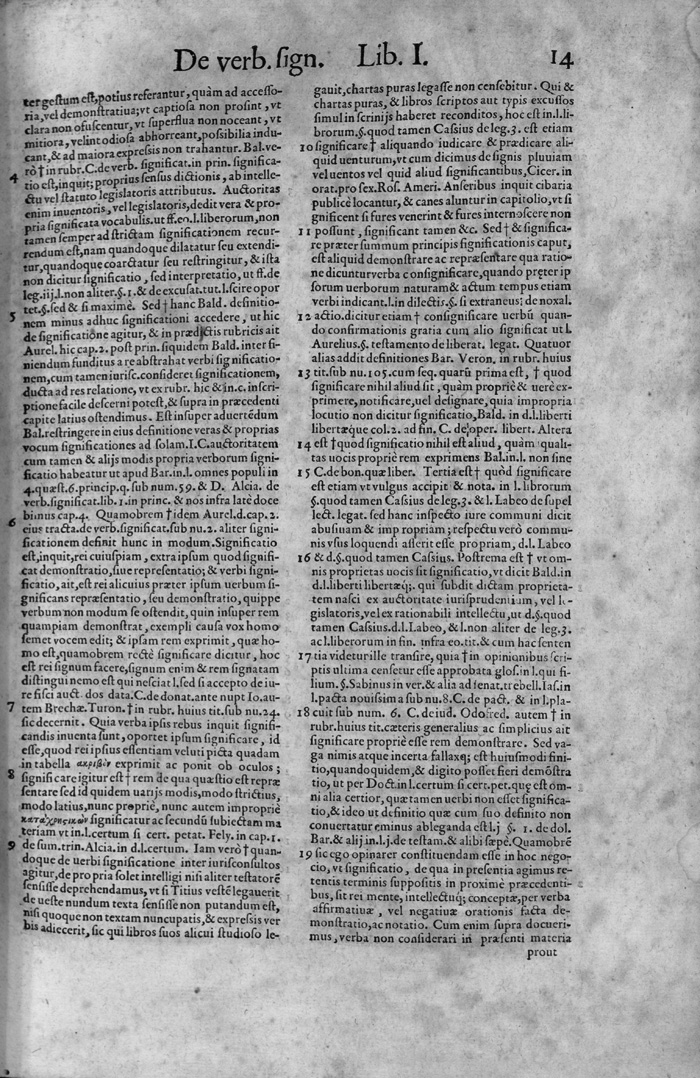 De verb. sign. Lib. I. 14
ter gestum est, potius referantur, quàm ad accesso-
ria, vel demonstratiua; vt captiosa non prosint, vt
clara non ofuscentur, vt superflua non noceant, vt
mitiora, velint odiosa abhorreant, possibilia indu-
cant, & ad maiora expressis non trahantur. Bal. ve-
rò † in rubr. C. de verb. significat. in prin. significa-
4 tio est, inquit; proprius sensus dictionis, ab intelle-
ctu vel statuto legislatoris attributus. Auctoritas
enim inuentoris, vel legislatoris, dedit vera & pro-
pria significata vocabulis. ut ff. eo. l. liberorum, non
tamen semper ad strictam significationem recur-
rendum est, nam quandoque dilatatur seu extendi-
tur, quandoque coarctatur seu restringitur, & ista
non dicitur significatio, sed interpretatio, ut ff. de
leg. iij. l. non aliter. §. 1. & de excusat. tut. l. scire opor
tet. §. sed & si maximè. Sed † hanc Bald. definitio-
5 nem minus adhuc significationi accedere, ut hic
de significatione agitur, & in prædictis rubricis ait
Aurel. hic cap. 2. post prin. siquidem Bald. inter fi-
niendum funditus a re abstrahat verbi significatio-
nem, cum tamen iurisc. consideret significationem,
ducta ad res relatione, vt ex rubr. hic & in c. inscri-
ptione facile descerni potest, & supra in præcedenti
capite latius ostendimus. Est insuper aduertēdum
Bal. restringere in eius definitione veras & proprias
vocum significationes ad solam. I. C. auctoritatem
cum tamen & alijs modis propria verborum signi-
ficatio habeatur ut apud Bar. in l. omnes populi in
4. quæst. 6. princip. q. sub num. 59. & D. Alcia. de
verb. significat. lib. 1. in princ. & nos infra latè doce
bimus cap. 4. Quamobrem † idem Aurel. d. cap. 2.
6 eius tracta. de verb. significat. sub nu. 2. aliter signi-
ficationem definit hunc in modum. Significatio
est, inquit, rei cuiuspiam, extra ipsum quod signifi-
cat demonstratio, siue representatio; & verbi signi-
ficatio, ait, est rei alicuius præter ipsum uerbum si-
gnificans repræsentatio, seu demonstratio, quippe
verbum non modum se ostendit, quin insuper rem
quampiam demonstrat, exempli causa vox homo
semet vocem edit; & ipsam rem exprimit, quæ ho-
mo est, quamobrem rectè significare dicitur, hoc
est rei signum facere, signum enim & rem signatam
distingui nemo est qui nesciat l. sed si accepto de iu-
re fisci auct. dos data. C. de donat. ante nupt Io. au-
7 tem Brechæ. Turon. † in rubr. huius tit. sub nu. 24.
sic decernit. Quia verba ipsis rebus inquit signifi-
candis inuenta sunt, oportet ipsum significare, id
esse, quod rei ipsius essentiam veluti picta quadam
in tabella ἀκριβῶς exprimit ac ponit ob oculos;
8 significare igitur est † rem de qua quæstio est repræ
sentare sed id quidem uarijs modis, modo strictius,
modo latius, nunc propriè, nunc autem impropriè
καταχρηστικῶς significatur ac secundū subiectam ma
teriam vt in. l. certum si cert. petat. Fely. in cap. 1.
9 de sum. trin. Alcia. in d. l. certum. Iam verò † quan-
doque de uerbi significatione inter iurisconsultos
agitur, de propria solet intelligi nisi aliter testatorē
sensisse deprehendamus, vt si Titius vestē legauerit
de ueste nundum texta sensisse non putandum est,
nisi quoque non textam nuncupatis, & expressis ver
bis adiecerit, sic qui libros suos alicui studioso le-
gauit, chartas puras legasse non censebitur. Qui &
chartas puras, & libros scriptos aut typis excussos
simul in scrinijs haberet reconditos, hoc est in. l. li-
brorum. §. quod tamen Cassius de leg. 3. est etiam
10 significare † aliquando iudicare & prædicare ali-
quid uenturum, vt cum dicimus de signis pluuiam
vel uentos vel quid aliud significantibus, Cicer. in
orat. pro sex. Ros. Ameri. Anseribus inquit cibaria
publicè locantur, & canes aluntur in capitolio, vt si
gnificent si fures venerint & fures internoscere non
11 possunt, significant tamen &c. Sed † & significa-
re præter summum principis significationis caput,
est aliquid demonstrare ac repræsentare qua ratio-
ne dicuntur verba consignificare, quando præter ip
sorum uerborum naturam & actum tempus etiam
verbi indicant. l. in dilectis. §. si extraneus; de noxal.
12 actio. dicitur etiam † consignificare uerbū quan-
do confirmationis gratia cum alio significat ut l.
Aurelius. §. testamento de liberat. legat. Quatuor
alias addit definitiones Bar. Veron, in rubr. huius
13 tit. sub nu. 105. cum seq. quarū prima est, † quod
significare nihil aliud sit, quàm propriè & uerè ex-
primere, notificare, uel designare, quia impropria
locutio non dicitur significatio, Bald. in d. l. liberti
libertæque col. 2. ad fin. C. de oper. libert. Altera
14 est † quod significatio nihil est aliud, quàm quali-
tas uocis propriè rem exprimens Bal. in l. non sine
15 C. de bon. quæ liber. Tertia est † quòd significare
est etiam vt vulgus accipit & nota. in l. librorum
§. quod tamen Cassius de leg. 3. & l. Labeo de supel
lect. legat. sed hanc inspecto iure communi dicit
abusiuam & impropriam; respectu verò commu-
nis vsus loquendi asserit esse propriam, d. l. Labeo
16 & d. §. quod tamen Cassius. Postrema est † vt om-
nis proprietas uocis sit significatio, vt dicit Bald. in
d. l. liberti libertæq;. qui subdit dictam proprieta-
tem nasci ex auctoritate iurisprudentium, vel le-
gislatoris, vel ex rationabili intellectu, ut d. §. quod
tamen Cassius. d. l. Labeo, & l. non aliter de leg. 3.
ac l. liberorum in fin. infra eo. tit. & cum hac senten
17 tia videtur ille transire, quia † in opinionibus scri-
ptis ultima censetur esse approbata glos. in l. qui fi-
lium. §. Sabinus in ver. & alia ad senat. trebell. Ias. in
l. pacta nouissima sub nu. 8. C. de pact. & in l. pla-
18 cuit sub num. 6. C. de iud. Odofred. autem † in
rubr. huius tit. cæteris generalius ac simplicius ait
significare propriè esse rem demonstrare. Sed va-
ga nimis atque incerta fallaxq; est huiusmodi fini-
tio, quandoquidem, & digito posset fieri demōstra
tio, ut per Doct. in l. certum si cert. pet. quę est om-
ni alia certior, quæ tamen uerbi non esset significa-
tio, & ideo ut definitio quæ cum suo definito non
conuertatur eminus ableganda est l. j §. 1. de dol.
Bar. & alij in l. j. de testam. & alibi sæpè. Quamobrē
19 sic ego opinarer constituendam esse in hoc nego-
cio, vt significatio, de qua in presentia agimus re-
tentis terminis suppositis in proximè præcedenti-
bus, sit rei mente, intellectuq; conceptæ, per verba
affirmatiuæ, vel negatiuæ orationis facta de-
monstratio, ac notatio. Cum enim supra docueri-
mus, verba non considerari in præsenti materia
prout